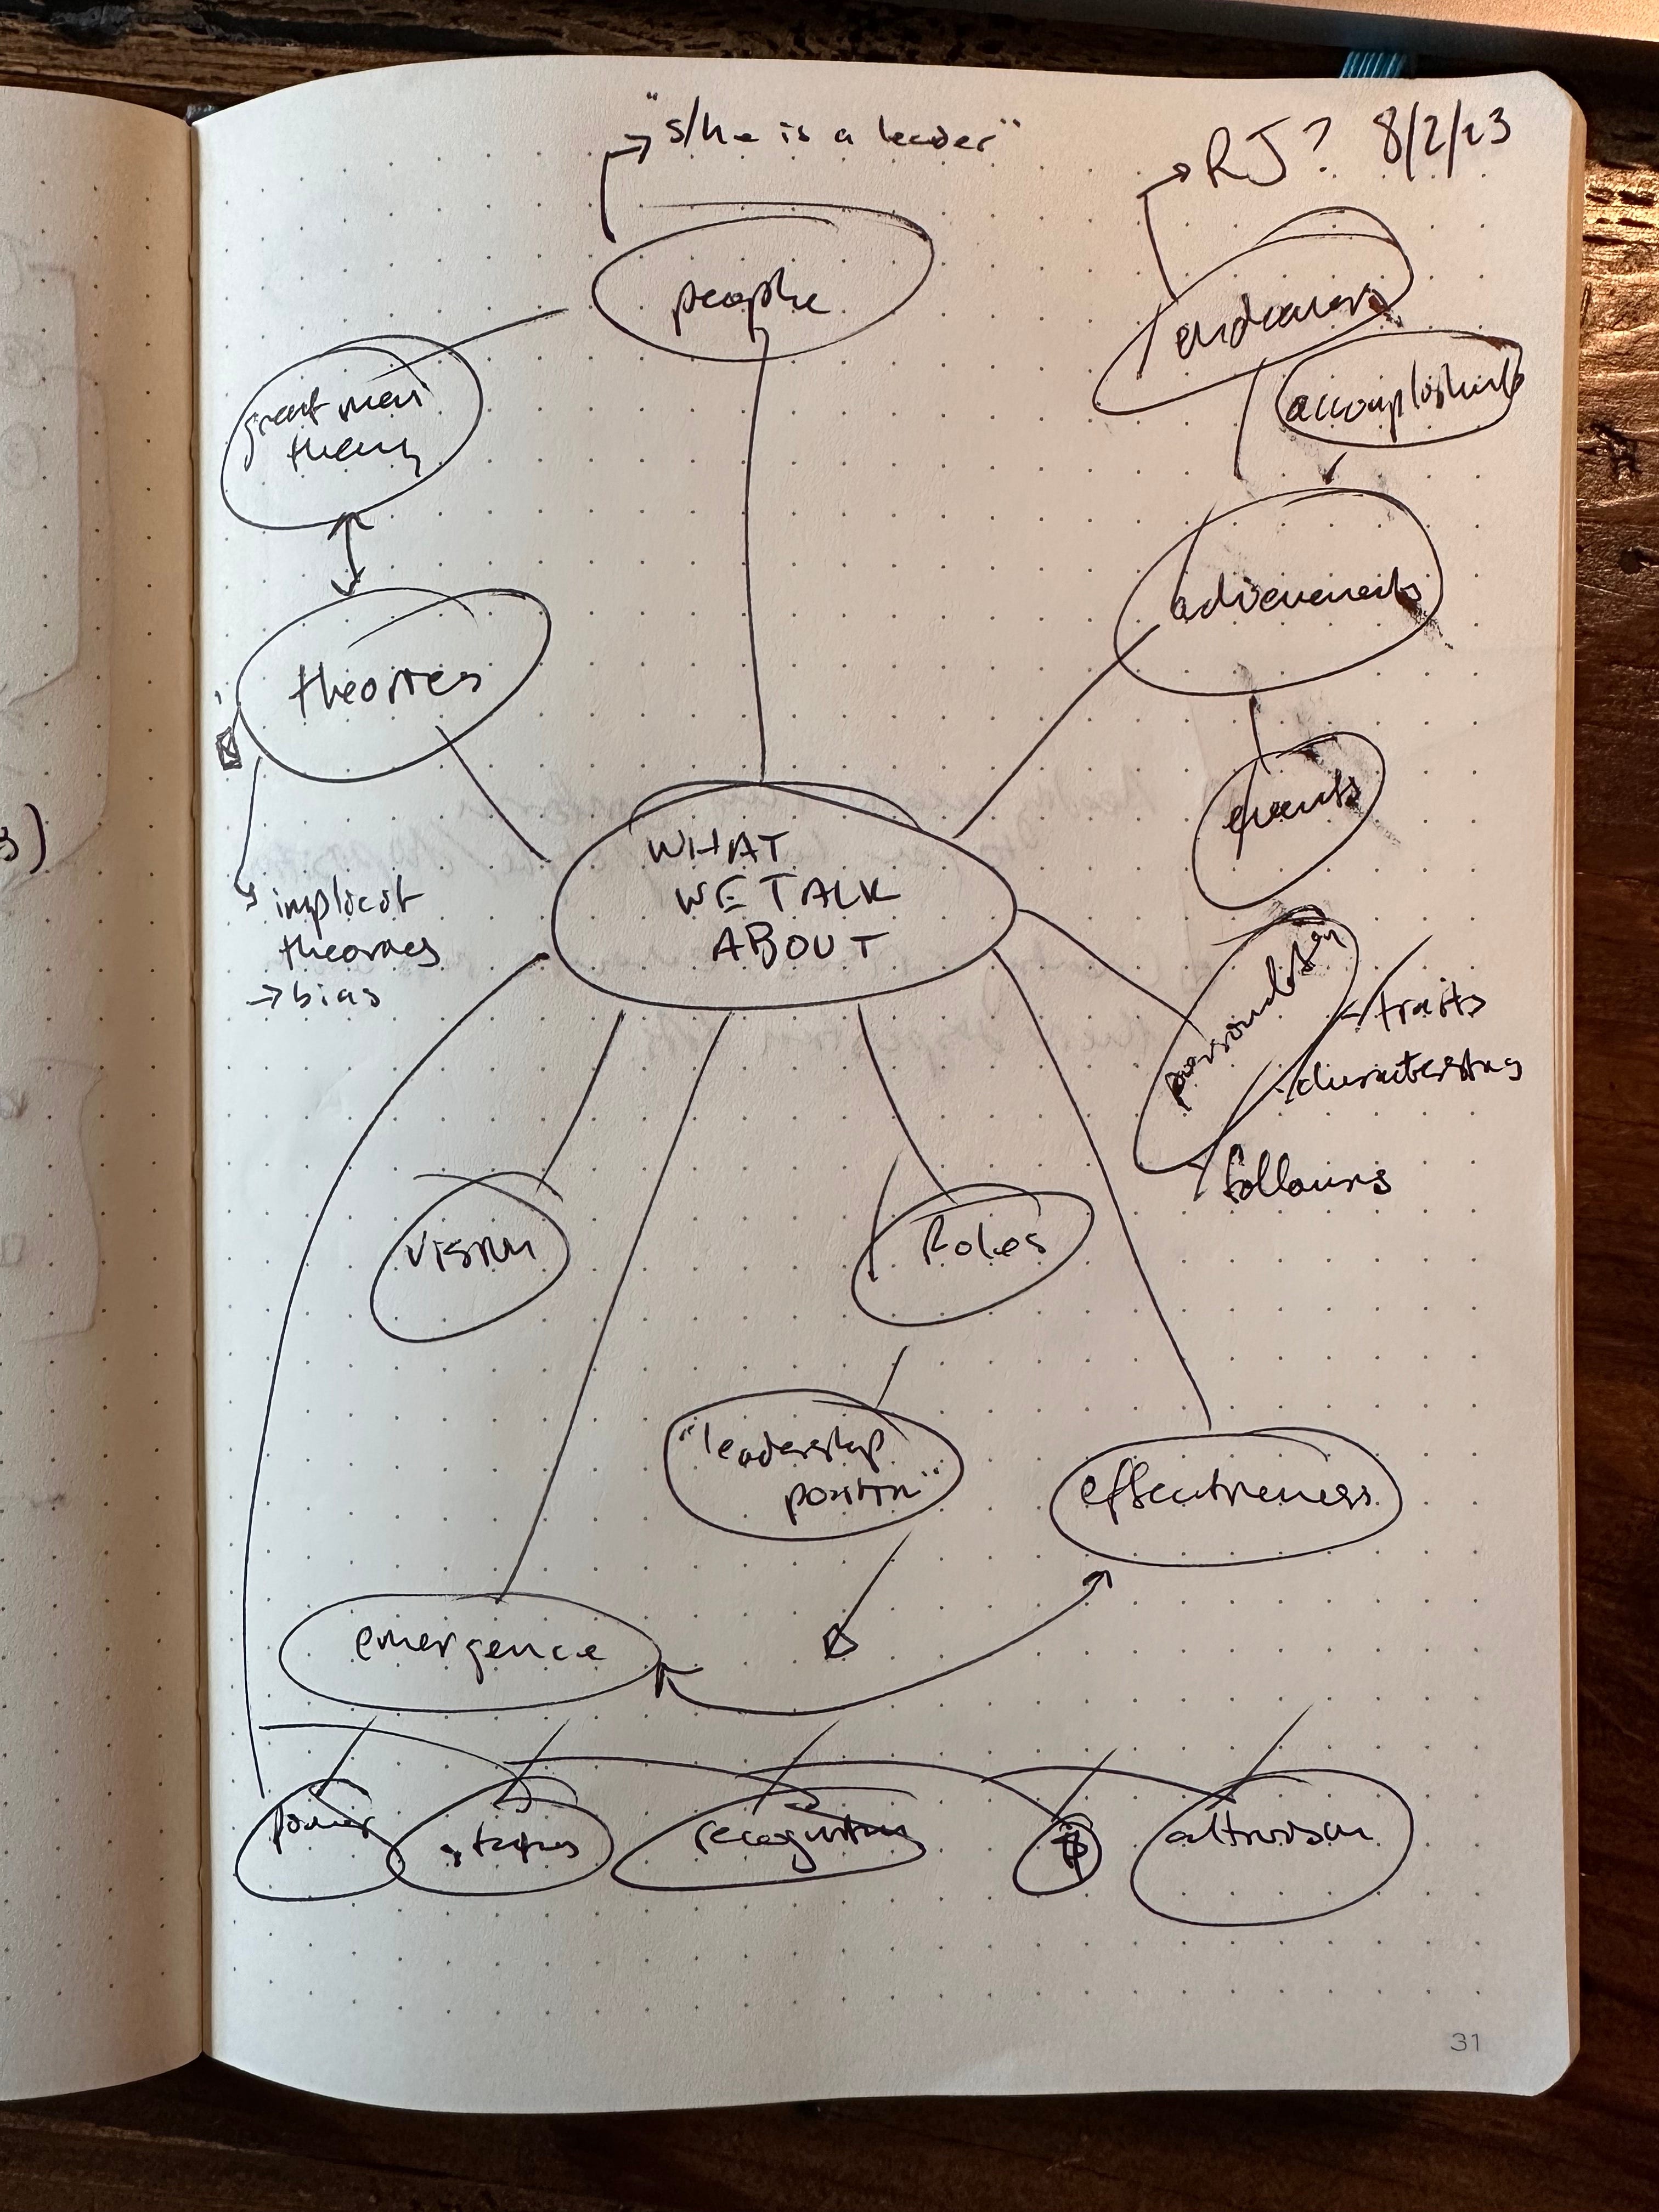 "s/he is a leader"
RJ? 8/2/23
people
endeavors
great man
theory
accomplishments
achievements
theories
events
WHAT
WE TALK
ABOUT
implicit
theories
→ bias
personality
traits
characteristics
followers
vision
Roles
"leadership
position"
effectiveness
emergence
power
status
recognition
$
altruism
31
s)